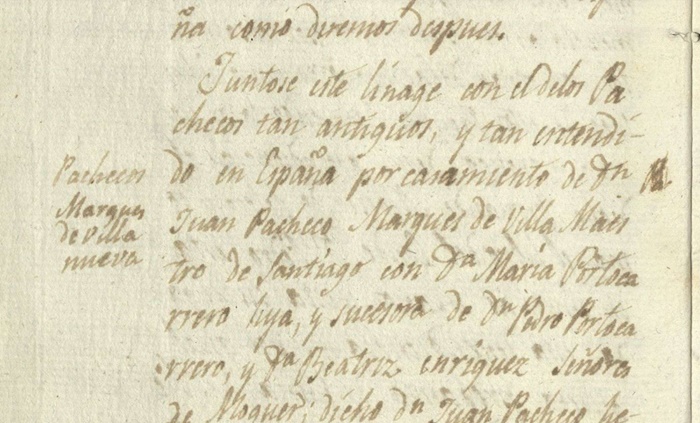 ña como diremos despues.
Juntose este linage con el delos Pa
checos tan antiguos, y tan entendi-
do en España por casamiento de Dn
Pachecos
Marques
de villa
nueva
Juan Pacheco Marques de Villa Maes
tro de Santiago con Da Maria Portoca
rrero hija, y sucesora de Dn Pedro Portoca
rrero, y Da Beatriz enriquez Señores
de Moguer; dicho dn Juan Pacheco he-